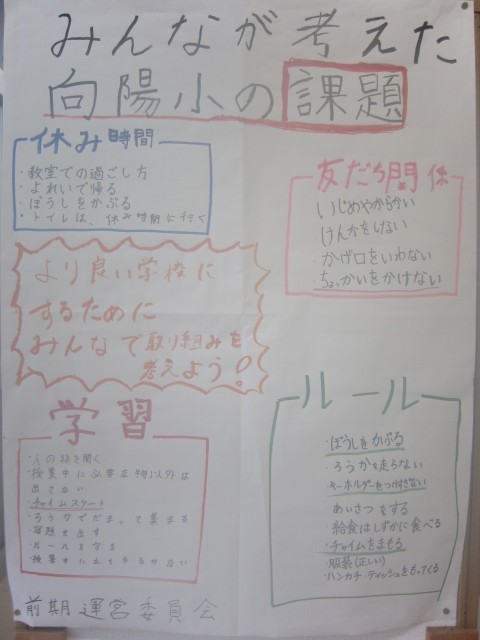 みんなが考えた
向陽小の課題
休み時間
・教室での過ごし方
・よれいで帰る
・ぼうしをかぶる
・トイレは、休み時間に行く
友だち関係
いじめやからかい
けんかをしない
・かげ口をいわない
ちょっかいをかけない
より良い学校に
するために
みんなで取り組みを
考えよう!
学習
・人の話を聞く
・授業中に必要な物以外は
出さない
・チャイムスタート
・ろうかでだまって集まる
・宿題を出す
・ルールを守る
・授業中に立ち
ルール
・ぼうしをかぶる
・ろうかを走らない
キーホルダーをつけすぎない
あいさつをする
・給食はしずかに食べる
・チャイムをまもる
・服装(正しい)
・ハンカチ ティッシュをもってくる
前期運営委員会